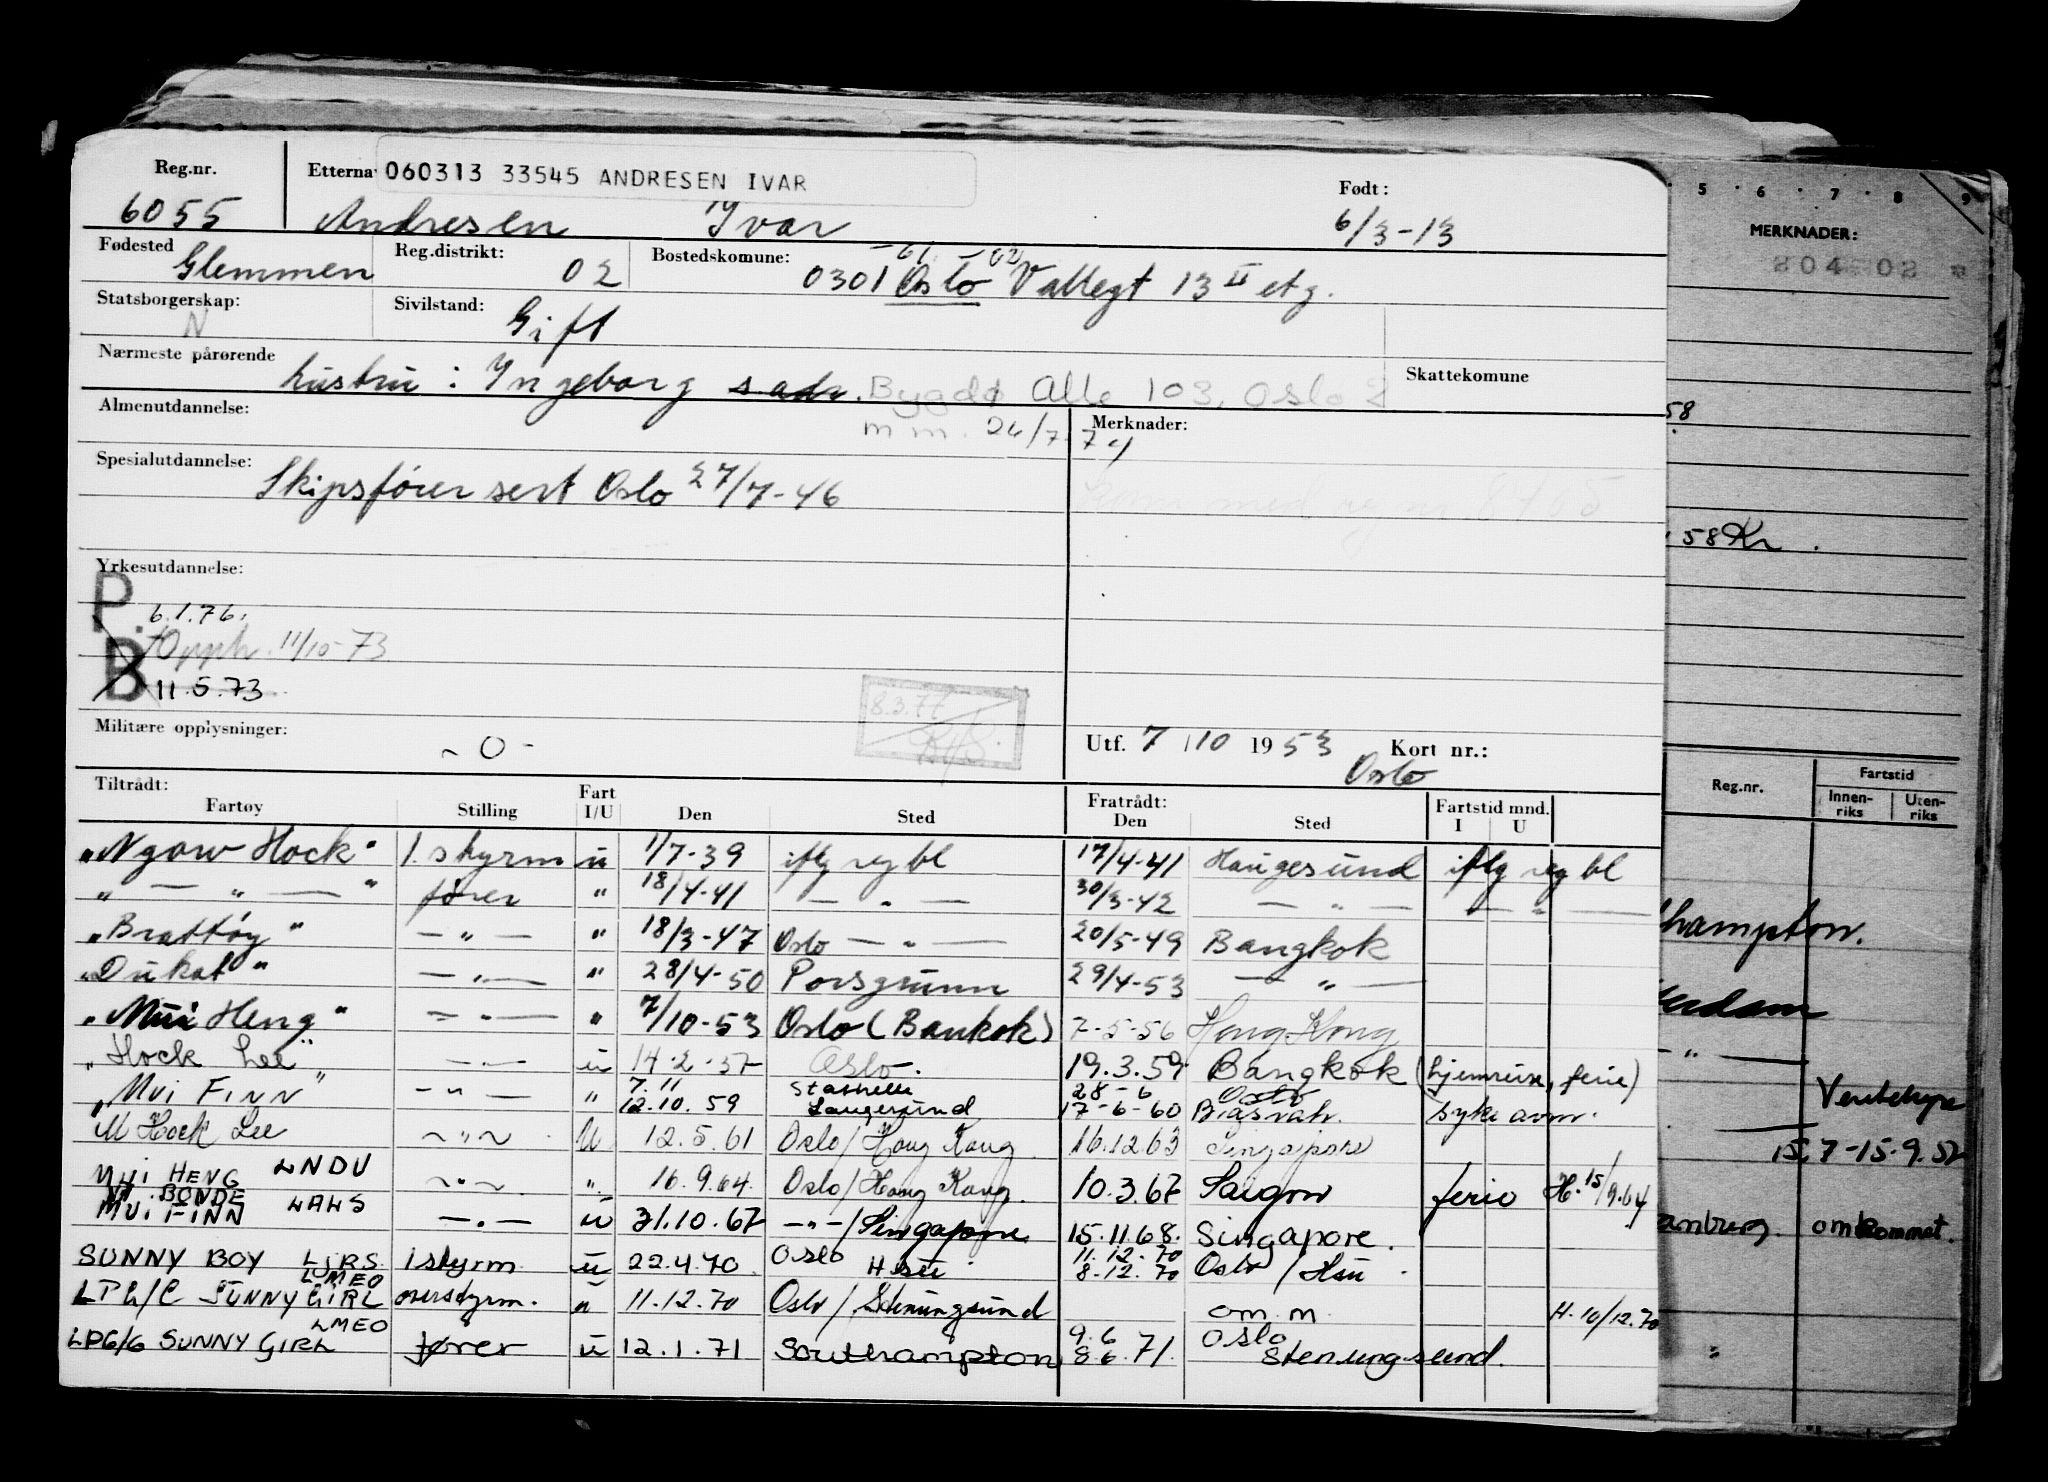 Reg.nr. Etterna 060313 33545 ANDRESEN IVAR Født:
6055 Andresen Ivar 6/3-13
Fødested Glemmen Reg.distrikt: 02 Bostedskomune: 0301 Oslo Vallegt 13 II etg.
Statsborgerskap: N Sivilstand: Gift
Nærmeste pårørende hustru: Ingeborg s. adr. Bygdø Alle 103, Oslo 2 Skattekomune
Almenutdannelse: m m. 24/7 74 Merknader:
Spesialutdannelse: Skipsfører sert Oslo 27/7-46
Yrkesutdannelse:
P. 6.1.76.
Opph. 11/10-73
B 11.5.73
8.3.77
Militære opplysninger: -0- Utf. 7/10 1953 Kort nr.:
Oslo
Tiltrådt: Fratrådt: Fartstid mnd.
Fartøy Stilling Fart I/U Den Sted Den Sted I U
"Ngow Hock" 1. styrm u 1/7-39 iflg regbl 17/4-41 Haugesund iflg reg bl
" — " — " fører " 18/4-41 — " — 30/3-42 — " — — " —
"Brattøy" — " — " 18/3-47 Oslo — " — 20/5-49 Bangkok
"Dukat" — " — " 28/4-50 Porsgrunn 29/4-53 — " —
"Mui Heng" — " — " 7/10-53 Oslo (Bankok) 7-5-56 Hong Kong
"Hock Lee" — " — u 14-2-57 Oslo. 19.3.59 Bangkok (hjemreise, ferie)
"Mui FINN" — " — " 7.11 12.10.59 Stathelle Langesund 28-6 17-6-60 Oslo syke avm.
M Hock Lee — " — U 12.5.61 Oslo/Hong Kong 16.12.63 Singapore
MUI HENG LNDU — " — " 16.9.64. Oslo/Hong Kong. 10.3.67 Saigon ferie H.15/9.64
M. BONDE
MUI FINN LAHS — " — u 31.10.67 — " —/Singapore 15.11.68. Singapore.
SUNNY BOY LJRS 1 styrm u 22.4.70 Oslo 11.12.70 8.12.70 Oslo
LMEO
LPG/C SUNNY GIRL overstyrm. " 11.12.70 Oslo/Stenungsund om.m. H.10/12.70
LMEO
LPG/G SUNNY GIRL fører u 12.1.71 Southampton 9.6 8.6.71. Oslo Stenungsund.
5 6 7 8 9
MERKNADER:
204 02
58
58 Kr.
Reg.nr. Fartstid
Innen-riks Uten-riks
hampton.
erdam
— " —
15.7-15.9.52
omkommet.
"